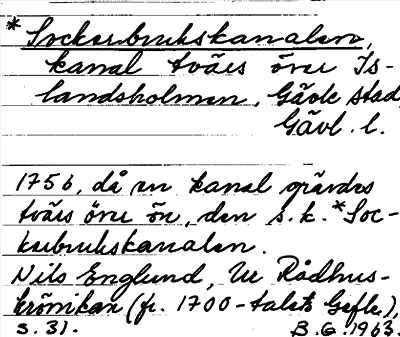 * Sockerbrukskanalen,
kanal tvärs över Is-
landsholmen, Gävle stad,
Gävl. l.
1756, då en kanal grävdes
tvärs över ön, den s.k. *Soc-
kerbrukskanalen.
Nils Englund, Ur Rådhus-
krönikan (fr. 1700-talets Gefle),
s. 31. B.G. 1963.